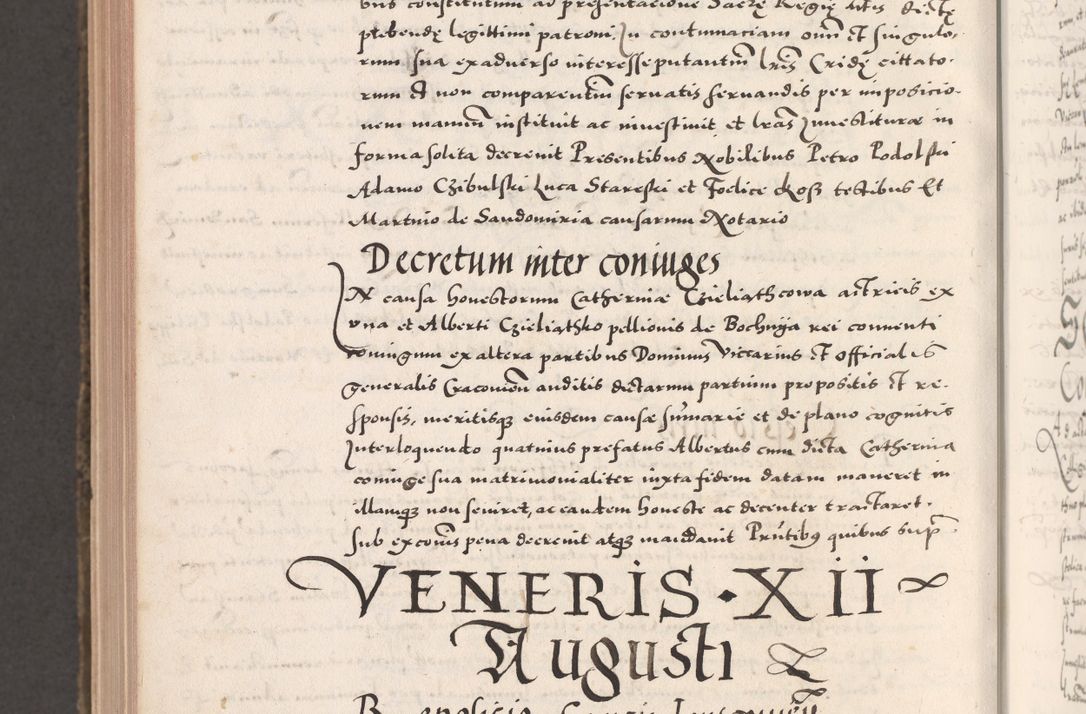 bus constitutum ad presentacione Sacrę Regię Mtis dictę
plebendę legittimi patroni. In contumaciam omn et singulo-
rum sua exadverso interesse putantiũ lrãs Cridę cittato-
rum et non comparentiũ servatis servandis per imposicio-
nem manuũ instituit ac investivit et lrãs Investiturae in
forma solita decrevit Presentibus Nobilibus Petro Podolski
Adamo Czibulski Luca Stareski et Foelice Kosz testibus Et
Martino de Sandomiria causarum Notario
Decretum inter coniuges
IN causa honestorum Catherinae Czieliąthcowa actricis ex
una et Alberti Czieliąthko pellionis de Bochnya rei conventi
coniugum ex altera partibus Dominus Viccarius et officialis
generalis Cracovieñ auditis dictarum partium propositis et re-
sponsis, meritisq eiusdem causae sũmarie et de plano cognitis
Interloquendo quatinus prefatus Albertus cum dicta Catherina
coniuge sua matrimonialiter iuxta fidem datam maneret in
illamq non seviret, ac eandem honeste ac decenter tractaret.
sub excoñis pena decrevit atq mandavit Prñtibq quibus sup
VENERIS · XII
Augusti